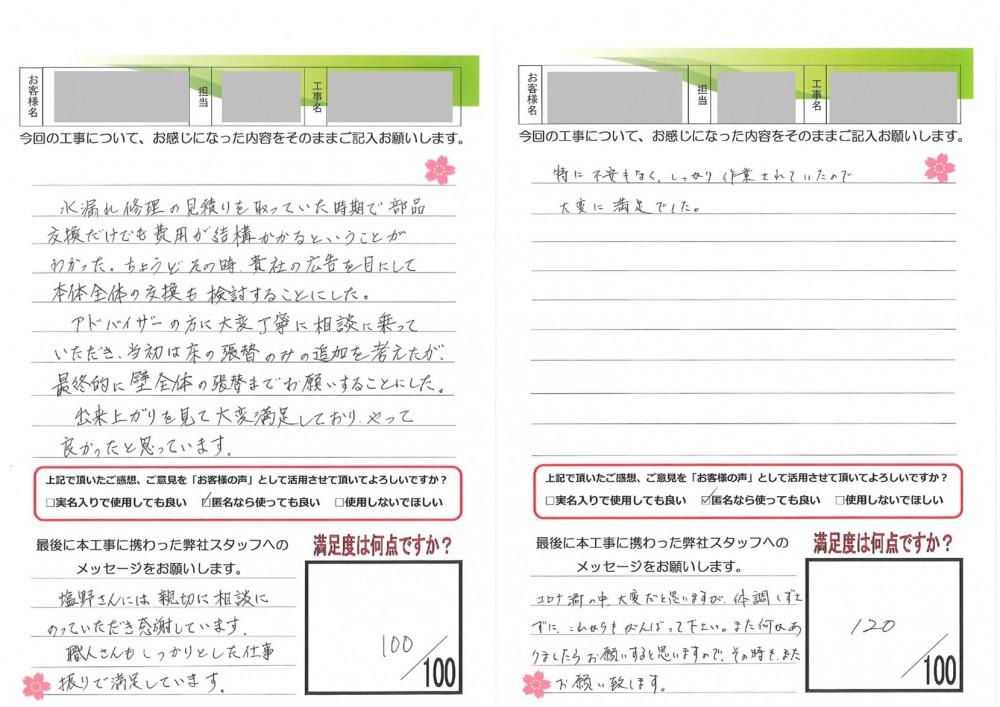 お客様名
担当
工事名
今回の工事について、お感じになった内容をそのままご記入お願いします。
水漏れ修理の見積りを取っていた時期で部品
交換だけでも費用が結構かかるということが
わかった。ちょうどその時、貴社の広告を目にして
本体全体の交換も検討することにした。
アドバイザーの方に大変丁寧に相談に乗って
いただき、当初は床の張替のみの追加を考えたが、
最終的に壁全体の張替までお願いすることにした。
出来上がりを見て大変満足しており、やって
良かったと思っています。
上記で頂いたご感想、ご意見を「お客様の声」として活用させて頂いてよろしいですか？
□実名入りで使用しても良い ☑匿名なら使っても良い □使用しないでほしい
最後に本工事に携わった弊社スタッフへの
メッセージをお願いします。
塩野さんには親切に相談に
のっていただき感謝しています。
職人さんもしっかりとした仕事
振りで満足しています。
満足度は何点ですか？
100/100
お客様名
担当
工事名
今回の工事について、お感じになった内容をそのままご記入お願いします。
特に不安もなく、しっかり作業されていたので
大変に満足でした。
上記で頂いたご感想、ご意見を「お客様の声」として活用させて頂いてよろしいですか？
□実名入りで使用しても良い ☑匿名なら使っても良い □使用しないでほしい
最後に本工事に携わった弊社スタッフへの
メッセージをお願いします。
コロナ渦の中、大変だと思いますが、体調くずさ
ずに、これからもがんばって下さい。また何かあ
りましたらお願いすると思いますので、その時も、また
お願い致します。
満足度は何点ですか？
120/100